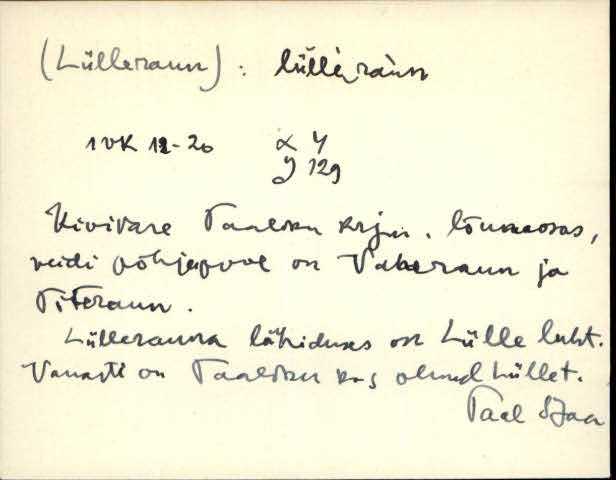 (Lülleraun): lülleràun
1 VK 12-20 x 4
y 129
Kivivare Taaliku krjm. lõunaosas,
veidi põhjapool on Vaheraun ja
Titeraun.
Lüllerauna läheduses on Lülle luht.
Vanasti on Taaliku kas olnud Lüllet.
Tael